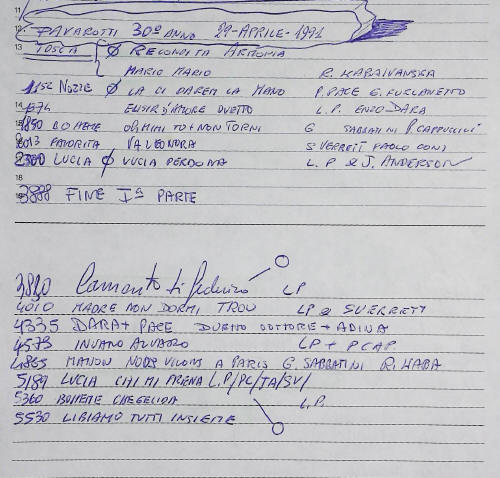 11
12 PAVAROTTI 30° ANNO 29-APRILE-1991
13 TOSCA Ø RECONDITA ARMONIA
MARIO MARIO R. KABAIVANSKA
1152 NOZZE Ø LA CI DAREM LA MANO P. PACE G. FURLANETTO
14 1674 ELISIR D'AMORE DUETTO L.P. ENZO DARA
15 1850 BOHEME OH MIMI TU + NON TORNI G SABBATINI P. CAPPUCCILLI
2013 FAVORITA VA LEONORA S VERRETT PAOLO CONI
2300 LUCIA Ø LUCIA PERDONA L. P & J. ANDERSON
18
3808 FINE Iª PARTE
3820 Lamento di Federico LP
4010 MADRE NON DORMI TROV LP & S VERRETT
4335 DARA + PACE DUETTO DOTTORE + ADINA
4573 INVANO ALVARO LP + P CAP
4865 MANON NOUS VIVONS A PARIS G. SABBATINI R. KABA
5189 LUCIA CHI MI FRENA L.P/PC/TA/SV/
5360 BOHEME CHE GELIDA L.P.
5530 LIBIAMO TUTTI INSIEME